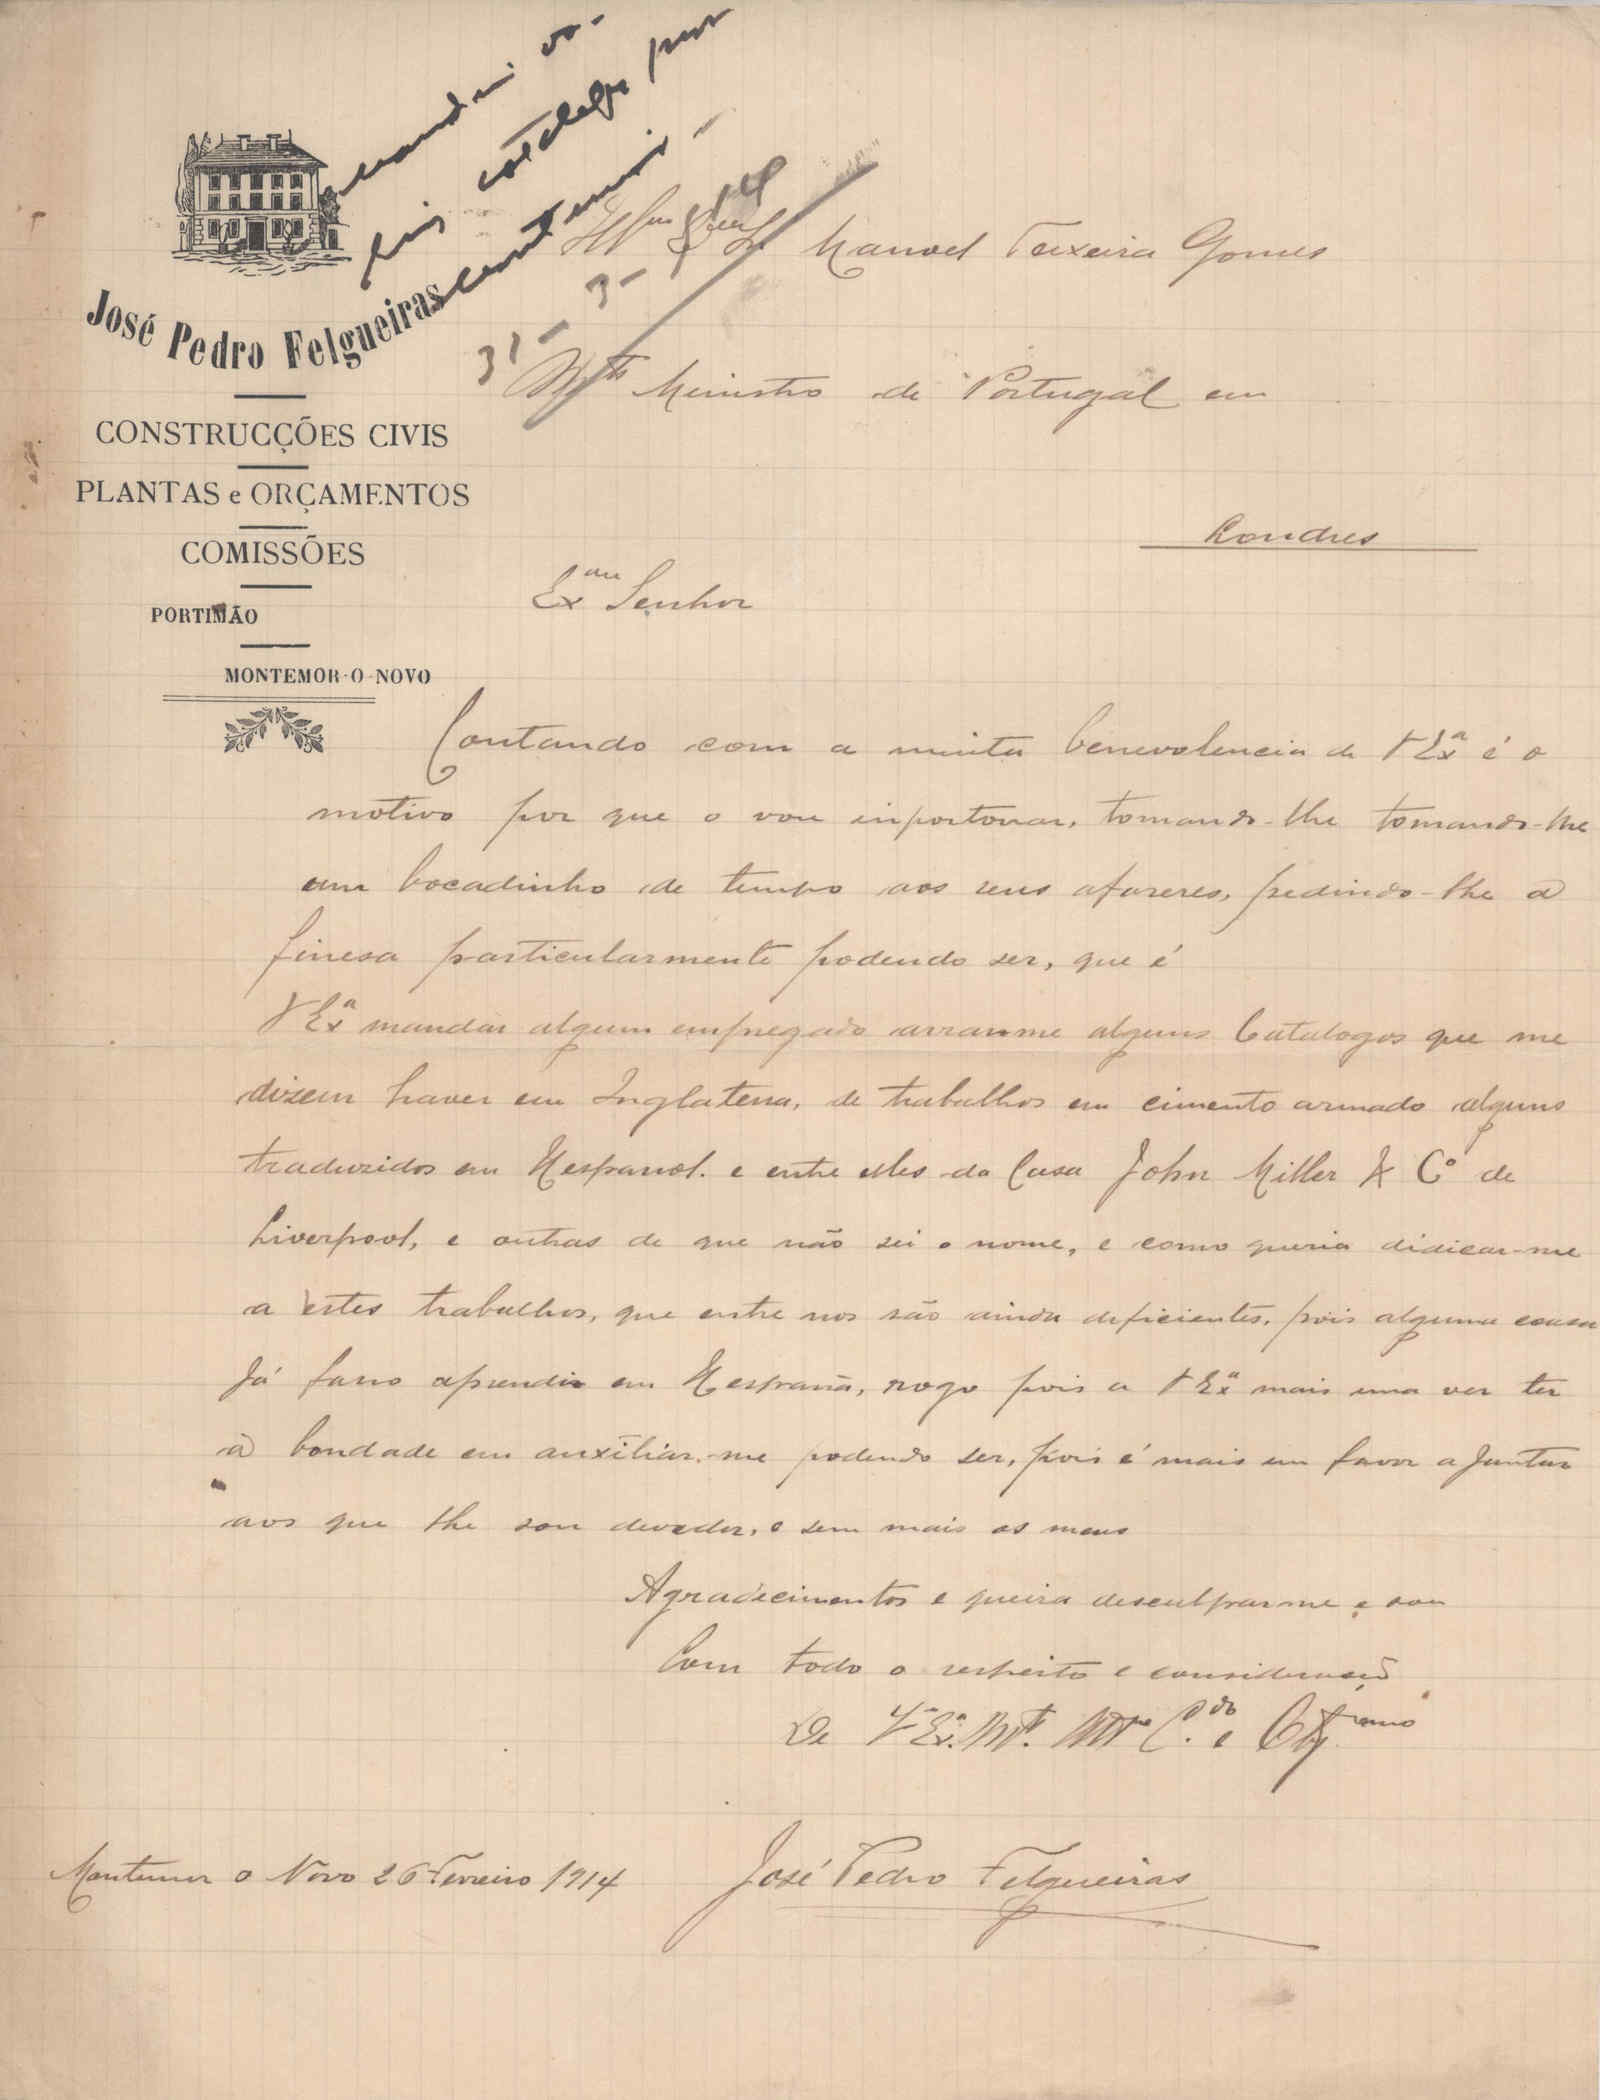 mandei va-
rios catalogos para
cimento armado -
31-3-914
José Pedro Felgueiras
CONSTRUCÇÕES CIVIS
PLANTAS e ORÇAMENTOS
COMISSÕES
PORTIMÃO
MONTEMOR-O-NOVO
Illmo Exmo Sr Manoel Teixeira Gomes
Mto Ministro de Portugal em
Londres
Exmo Senhor
Contando com a muita benevolencia de VExa é o
motivo por que o vou inportonar, tomando-lhe tomando-lhe
um bocadinho de tempo aos seus afazeres, pedindo-lhe a
finesa particularmente podendo ser, que é
VExa mandar algum empregado arranme alguns Catalogos que me
dizem haver em Inglaterra, de trabalhos em cimento armado alguns
traduzidos em Hespanol. e entre elles da Casa John Miller & Co de
Liverpool, e outras de que não sei o nome, e como queria didicar-me
a estes trabalhos, que entre nos são ainda deficientes, pois alguma cousa
Já faço aprendir em Hespaña, rogo pois a VExa mais uma vez ter
a bondade em auxiliar-me podendo ser, pois é mais um favor a Juntar
aos que lhe sou devedor, e sem mais os meus
Agradecimentos e queira desculparme e sou
Com todo o respeito e consideração
De Va Exa. Mto. Cdo. e Obgmo
Montemor o Novo 26 Fevreiro 1914
José Pedro Felgueiras